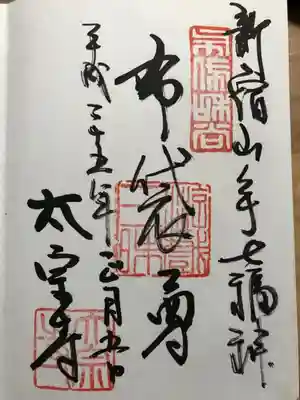 新宿山手七福神
布袋尊
平成二十五年正月五日
太宗寺